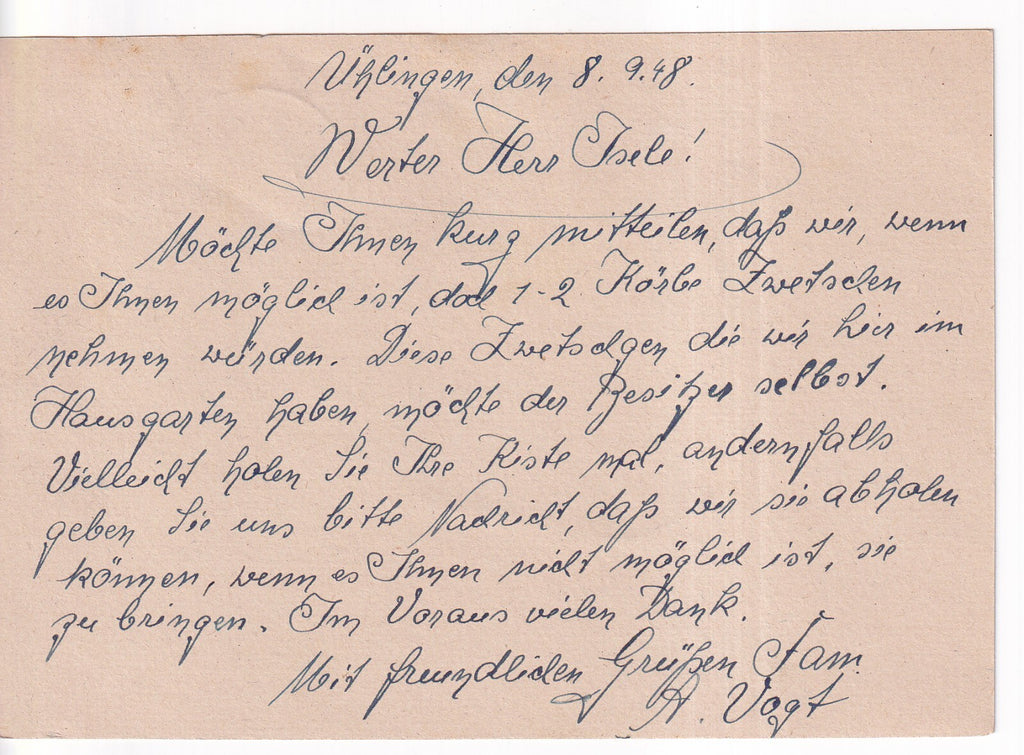 Ühlingen, den 8. 9. 48.
Werter Herr Isele!
Möchte Ihnen kurz mitteilen, daß wir, wenn
es Ihnen möglich ist, doch 1-2 Körbe Zwetschen
nehmen würden. Diese Zwetschgen die wir hier im
Hausgarten haben, möchte der Besitzer selbst.
Vielleicht holen Sie Ihre Kiste mal, andernfalls
geben Sie uns bitte Nachricht, daß wir sie abholen
können, wenn es Ihnen nicht möglich ist, sie
zu bringen. Im Voraus vielen Dank.
Mit freundlichen Grüßen Fam.
A. Vogt